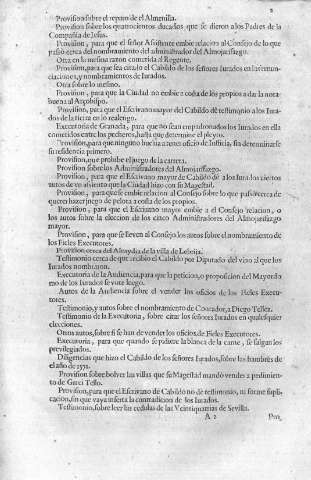 2
Provision sobre el reparo de el Almenilla.
Provision sobre los quatrocientos ducados que se dieron a los Padres de la
Compañia de Iesus.
Provision, para que el señor Assistente embie relacion al Consejo de lo que
passò cerca del nombramiento del administrador del Almojarifazgo.
Otra en la mesma razon cometida al Regente.
Provision, para que sea citado el Cabildo de los señores Iurados en las renun-
ciaciones, y nombramientos de Iurados.
Otra sobre lo mesmo.
Provision, para que la Ciudad no embie a costa de los propios a dar la nora-
buena al Arçobispo.
Provision, para que el Escrivano mayor del Cabildo dè testimonio a los Iura-
dos de la ticra en lo realengo.
Executoria de Granada, para que no sean empadronados los Iurados en ella
cometidos entre los pecheros, hasta que determine el pleyto.
Provision, para que ninguno buelva a tener oficio de Iusticia, sin determinarse
su residencia primero.
Provision, que prohibe el juego de la carrera.
Provision sobre los Administradores del Almojarifazgo.
Provision, para que el Escrivano mayor de Cabildo dè a los Iurados ciertos
autos de vn assiento que la Ciudad hizo con su Magestad.
Provision, para que se embie relacion al Consejo sobre lo que passò cerca de
querer hazer juego de pelota a costa de los propios.
Provision, para que el Escrivano mayor embie a el Consejo relacion, o
los autos sobre la eleccion de los cinco Administradores del Almojarifazgo
mayor.
Provision, para que se lleven al Consejo los autos sobre el nombramiento de
los Fieles Executores.
Provision cerca del Almoydia de la villa de Lebrija.
Testimonio cerca de que recibio el Cabildo por Diputado del vino al que los
Iurados nombraron.
Executoria de la Audiencia, para que la peticion, o proposicion del Mayordo-
mo de los Iurados se vote luego.
Autos de la Audiencia sobre el vender los oficios de los Fieles Execu-
tores.
Testimonio, y autos sobre el nombramiento de Contador, a Diego Tellez.
Testimonio de la Executoria, sobre citar los señores Iurados en qualesquier
elecciones.
Otros autos, sobre si se han de vender los oficios de Fieles Executores.
Executoria, para que quando se pidiere la blanca de la carne, se salgan los
previlegiados.
Diligencias que hizo el Cabildo de los señores Iurados, sobre las hambres de
el año de 1571.
Provision sobre bolver las villas que su Magestad mandò vender a pedimien-
to de Garci Tello.
Provision, para que el Escrivano de Cabildo no dè testimonio, ni forme supli-
cacion, sin que vaya inserta la contradicion de los Iurados.
Testimonio, sobre leer las cedulas de las Veintiquatrias de Sevilla.
A 2